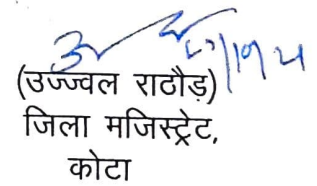 (उज्ज्वल राठौड़)
जिला मजिस्ट्रेट,
कोटा